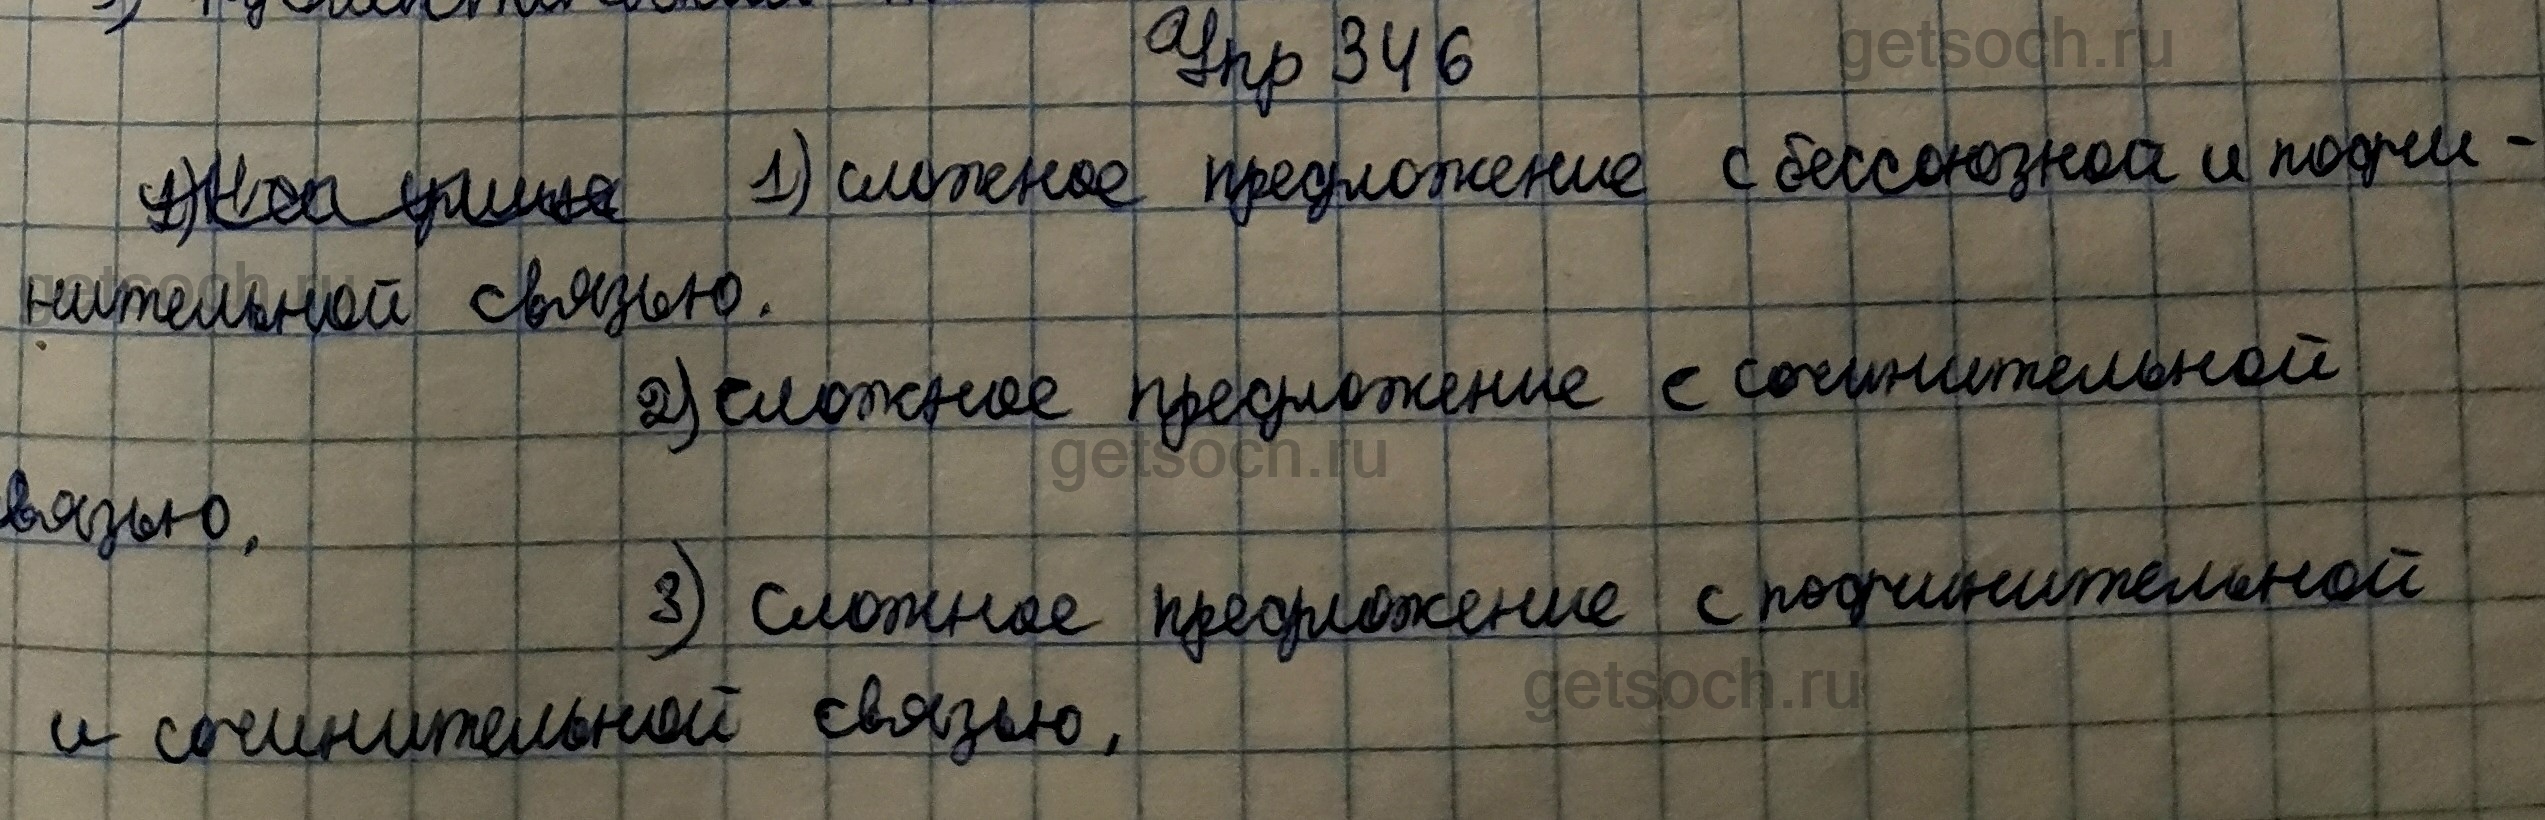 Упр 346
1) сложное предложение с бессоюзной и подчи-
нительной связью.
2) сложное предложение с сочинительной
вязью.
3) сложное предложение с подчинительной
и сочинительной связью.
getsoch.ru
getsoch.ru
getsoch.ru
getsoch.ru